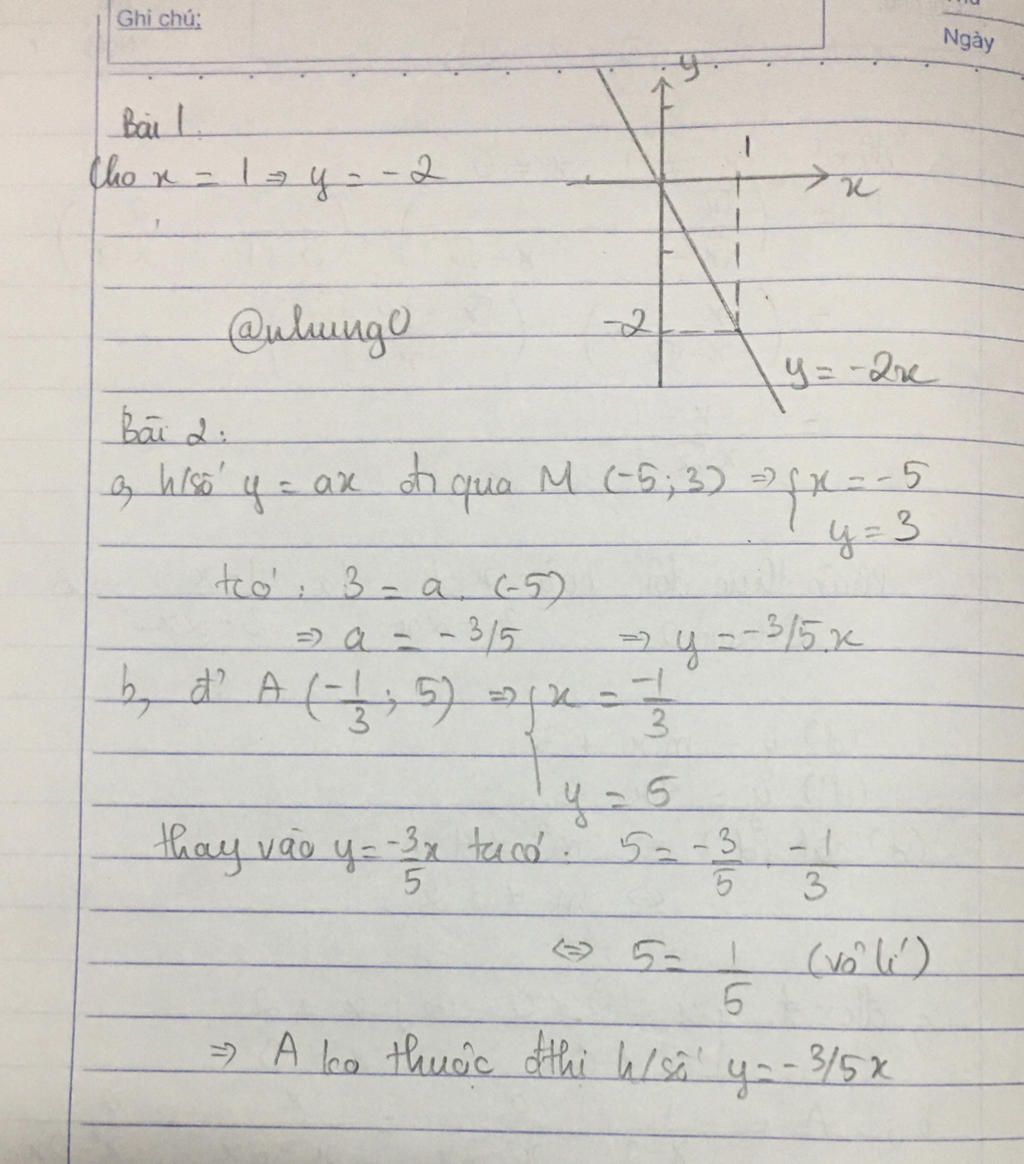 Ghi chú:
Ngày
Bài 1.
Cho x = 1 ⇒ y = -2
y
1
x
-2
y = -2x
@nhung0
Bài 2:
a, h/số y = ax đi qua M (-5; 3) ⇒ { x = -5
y = 3
tcó: 3 = a. (-5)
⇒ a = -3/5 ⇒ y = -3/5.x
b, đ' A (-1/3; 5) ⇒ { x = -1/3
y = 5
thay vào y = -3/5 x ta có. 5 = -3/5 . -1/3
⇔ 5 = 1/5 (vô lí)
⇒ A ko thuộc đthị h/số y = -3/5x